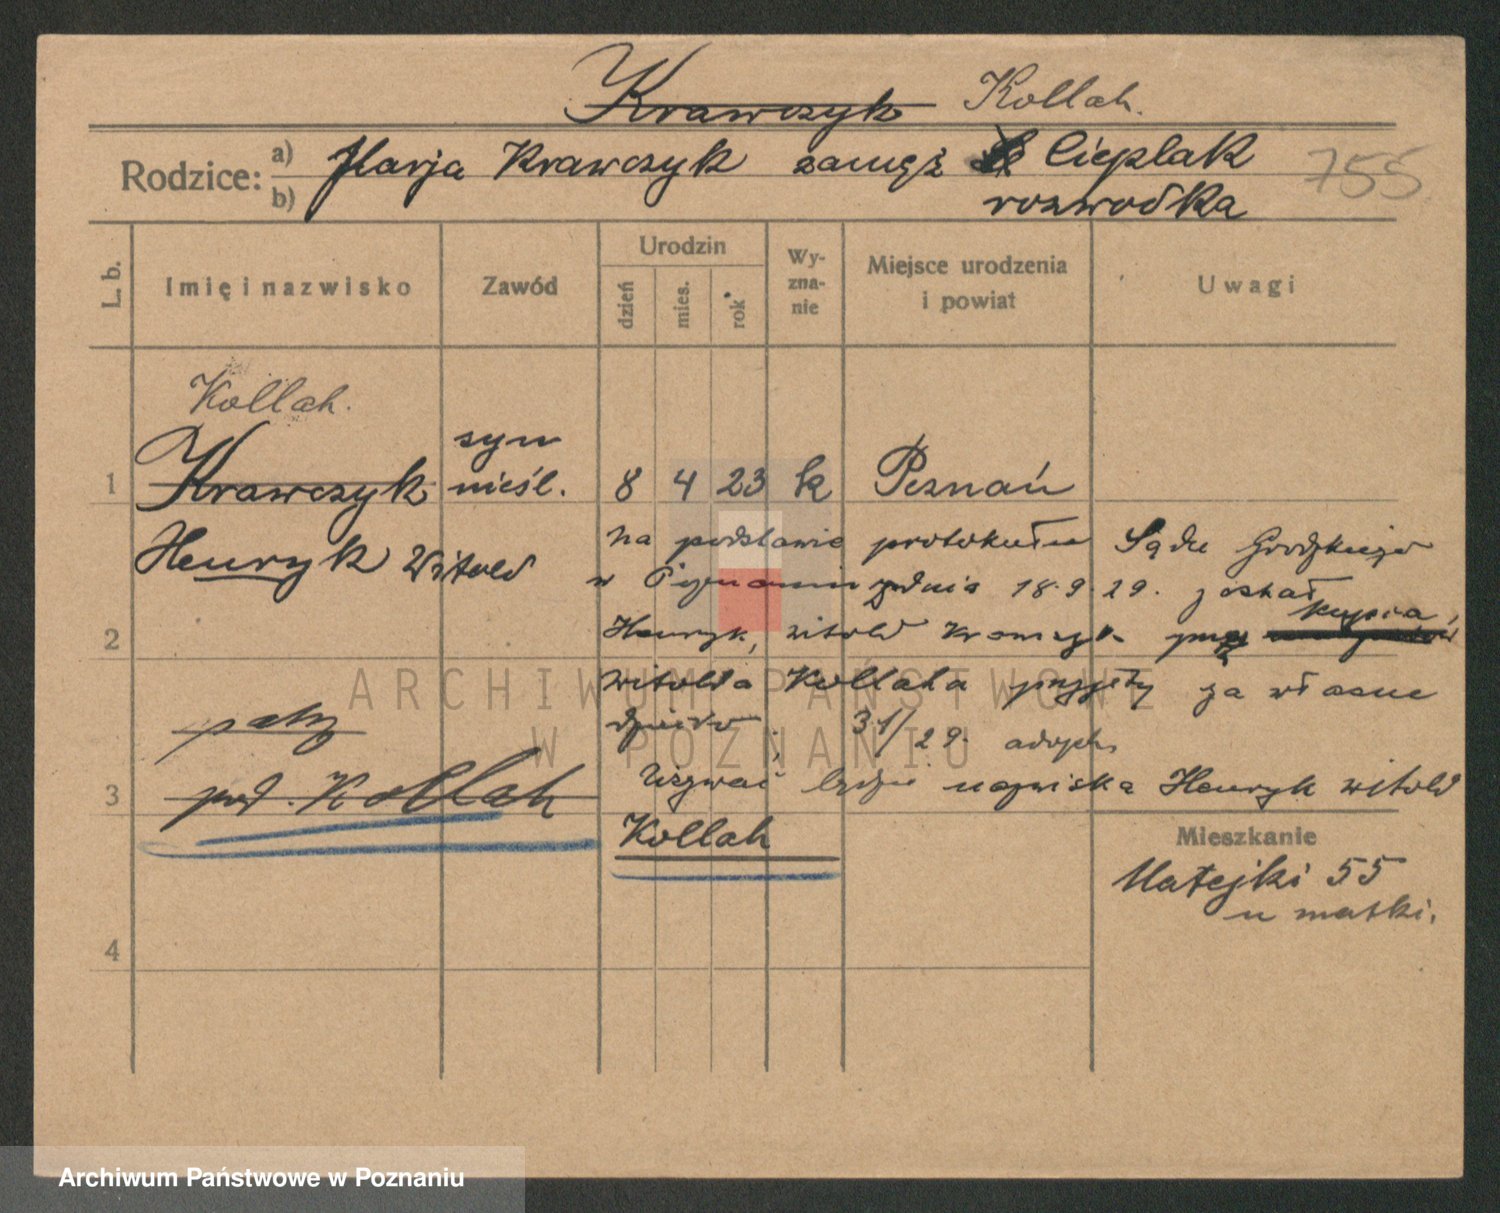 Krawczyk Kollah.
Rodzice: a) Marja Krawczyk zamęż Cieplak
b) rozwodka
755
L. b.
Imię i nazwisko
Zawód
Urodzin
dzień
mies.
rok
Wy-
zna-
nie
Miejsce urodzenia
i powiat
Uwagi
Kollah.
1 Krawczyk syn nieśl. 8 4 23 k Poznań
Henryk Witold
na podstawie protokułu Sądu Grodzkiego
w Poznaniu z dnia 18.9.29. został
2
Henryk, Witold Krawczyk przez kupca,
Witolda Kollaha przyjęty za własne
dziecko, 31/29. adopt.
patrz
3 pod. Kollah
Używać będzie nazwiska Henryk Witold
Kollah
Mieszkanie
Matejki 55
u matki.
4
ARCHIWUM PAŃSTWOWE
W POZNANIU
Archiwum Państwowe w Poznaniu